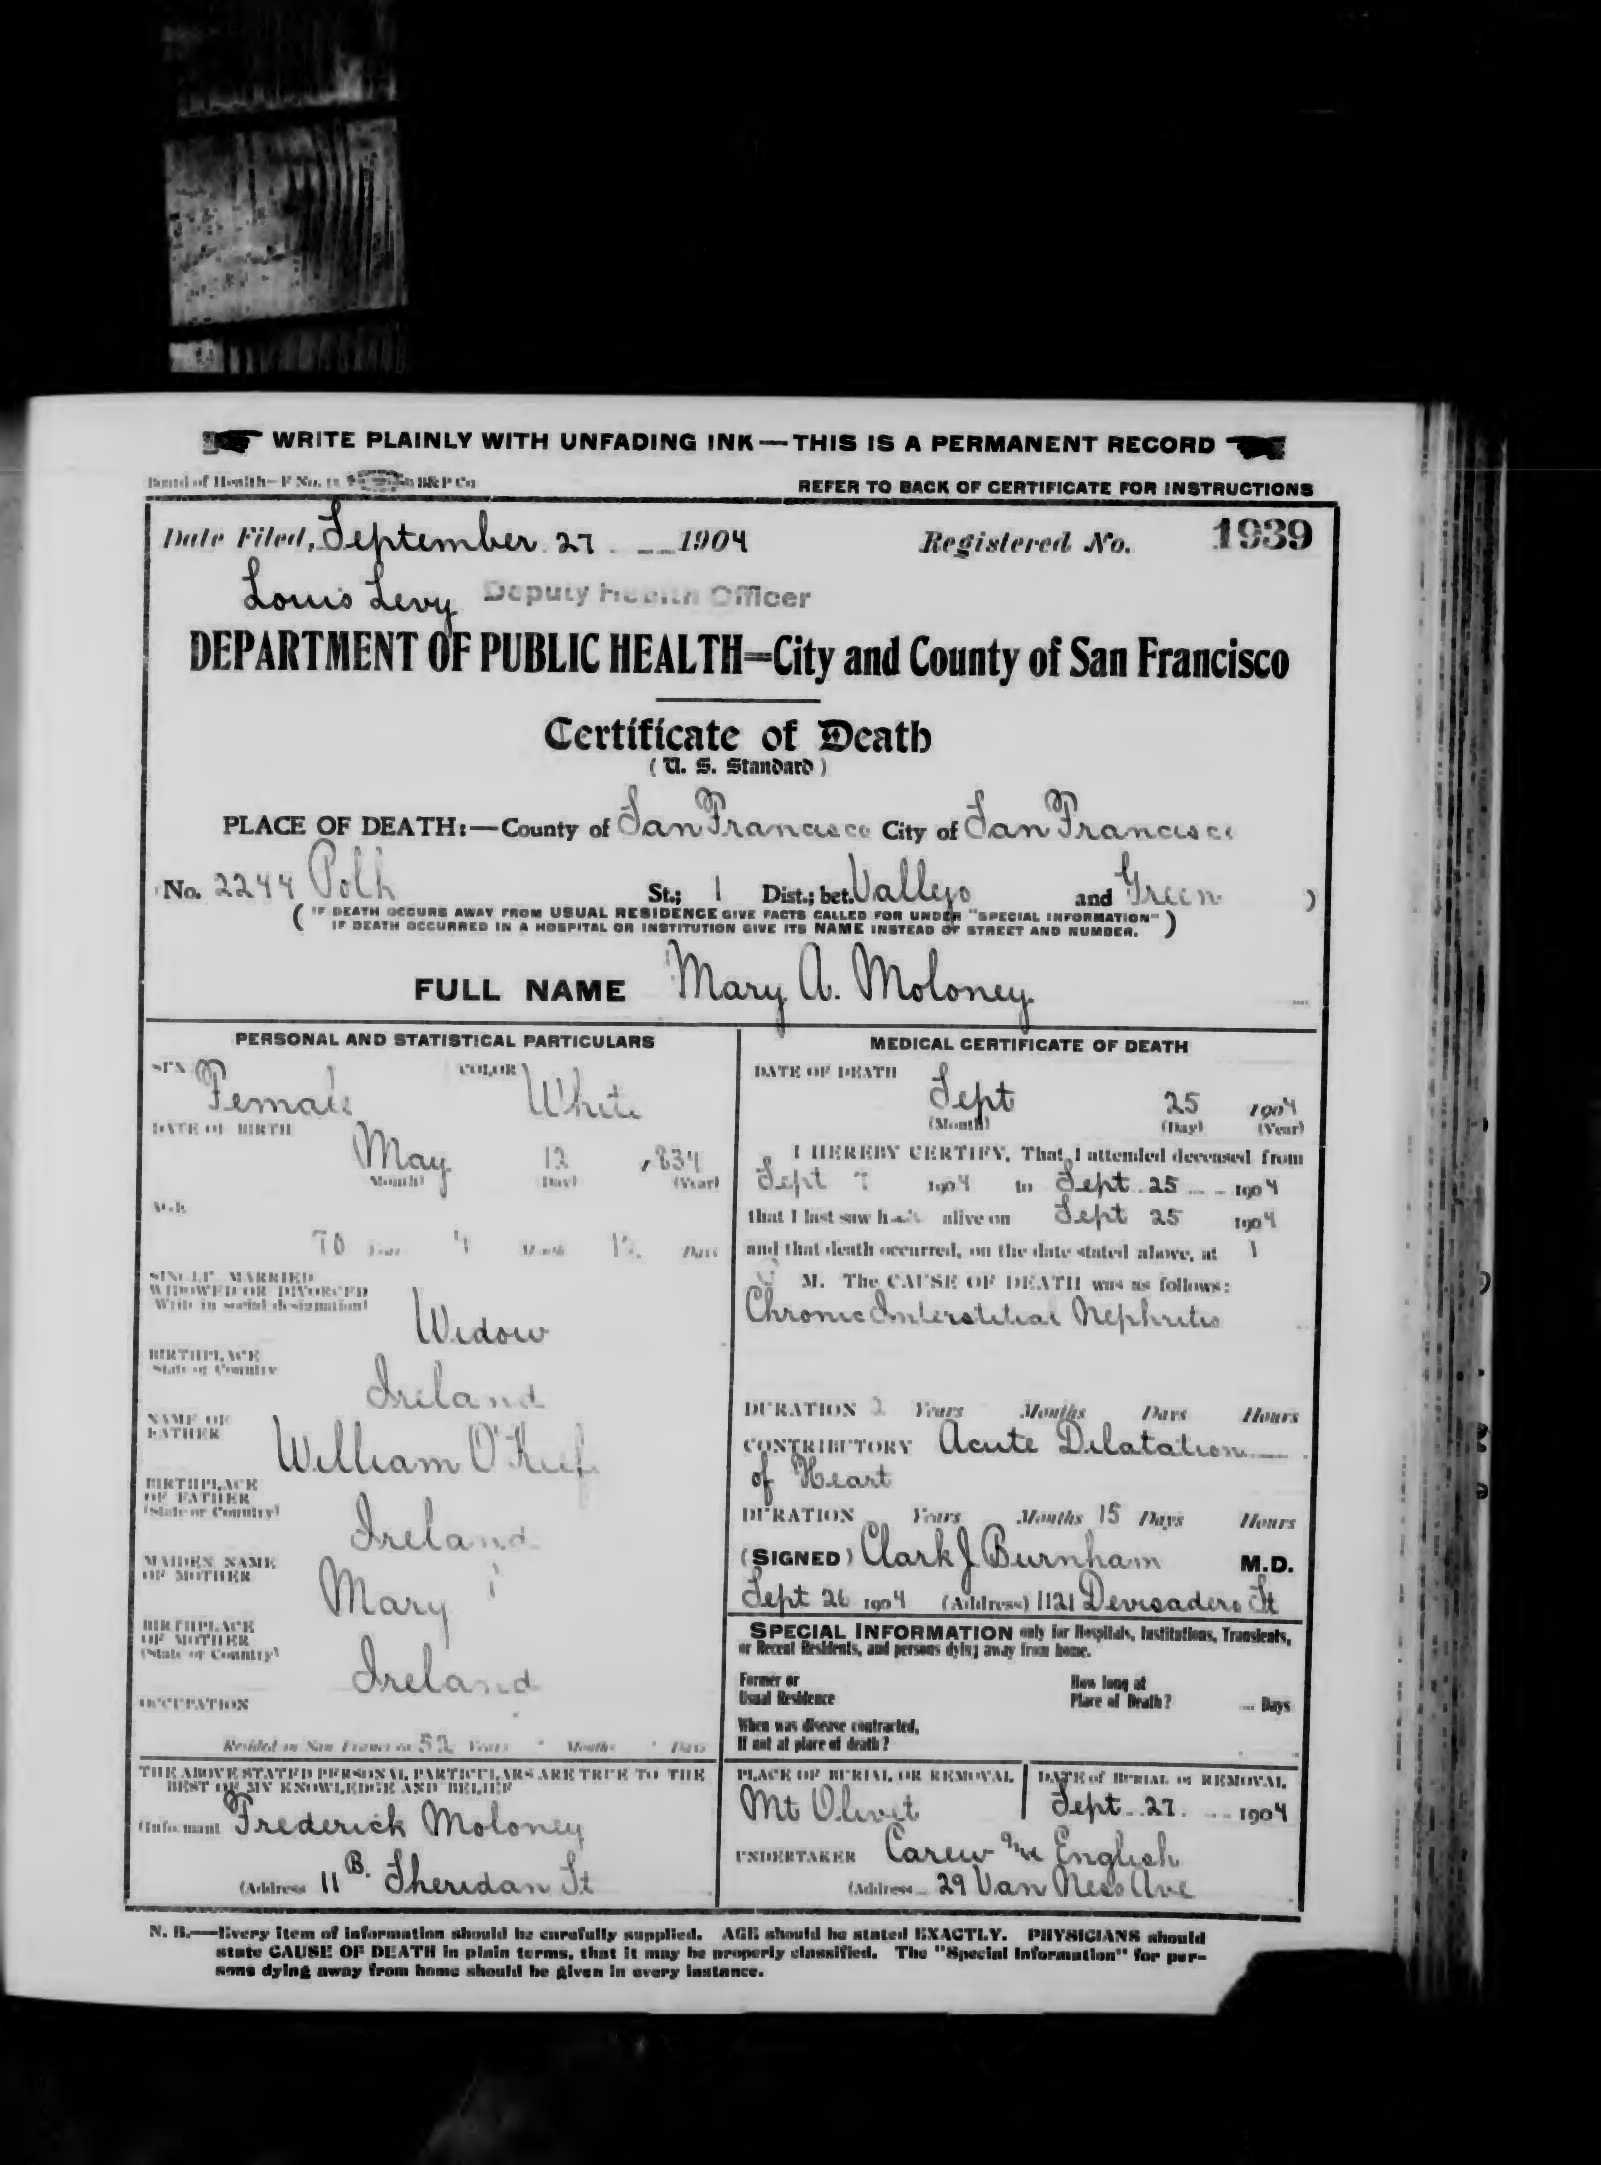 WRITE PLAINLY WITH UNFADING INK—THIS IS A PERMANENT RECORD
Board of Health—F No. B&P Co
REFER TO BACK OF CERTIFICATE FOR INSTRUCTIONS
Date Filed, September 27 1904 Registered No. 1939
Louis Levy Deputy Health Officer
DEPARTMENT OF PUBLIC HEALTH=City and County of San Francisco
Certificate of Death
(U. S. Standard)
PLACE OF DEATH:—County of San Francisco City of San Francisco
No. 2244 Polk St.; 1 Dist.; bet. Vallejo and Green )
( IF DEATH OCCURS AWAY FROM USUAL RESIDENCE GIVE FACTS CALLED FOR UNDER "SPECIAL INFORMATION"
IF DEATH OCCURRED IN A HOSPITAL OR INSTITUTION GIVE ITS NAME INSTEAD OF STREET AND NUMBER. )
FULL NAME Mary A. Moloney
PERSONAL AND STATISTICAL PARTICULARS
SEX Female COLOR White
DATE OF BIRTH
May 12 1834
(Month) (Day) (Year)
AGE
70 Years 4 Months Days
SINGLE, MARRIED
WIDOWED OR DIVORCED
Write in social designation)
Widow
BIRTHPLACE
State or Country
Ireland
NAME OF
FATHER
William O'Keefe
BIRTHPLACE
OF FATHER
(State or Country)
Ireland
MAIDEN NAME
OF MOTHER
Mary
BIRTHPLACE
OF MOTHER
(State or Country)
Ireland
OCCUPATION
Resided in San Francisco 52 Years Months Days
THE ABOVE STATED PERSONAL PARTICULARS ARE TRUE TO THE
BEST OF MY KNOWLEDGE AND BELIEF
(Informant Frederick Moloney
(Address 11 B. Sheridan St
MEDICAL CERTIFICATE OF DEATH
DATE OF DEATH
Sept 25 1904
(Month) (Day) (Year)
I HEREBY CERTIFY, That I attended deceased from
Sept 7 1904 to Sept 25 1904
that I last saw her alive on Sept 25 1904
and that death occurred, on the date stated above, at 1
M. The CAUSE OF DEATH was as follows:
Chronic Interstitial Nephritis
DURATION 2 Years Months Days Hours
CONTRIBUTORY Acute Dilatation
of Heart
DURATION Years Months 15 Days Hours
(SIGNED) Clark J Burnham M.D.
Sept 26 1904 (Address) 1121 Devisadero St
SPECIAL INFORMATION only for Hospitals, Institutions, Transients,
or Recent Residents, and persons dying away from home.
Former or
Usual Residence
How long at
Place of Death? Days
When was disease contracted,
If not at place of death?
PLACE OF BURIAL OR REMOVAL
Mt Olivet
DATE of BURIAL or REMOVAL
Sept 27 1904
UNDERTAKER Carew and English
(Address 29 Van Ness Ave
N. B.—Every item of information should be carefully supplied. AGE should be stated EXACTLY. PHYSICIANS should
state CAUSE OF DEATH in plain terms, that it may be properly classified. The "Special Information" for per-
sons dying away from home should be given in every instance.